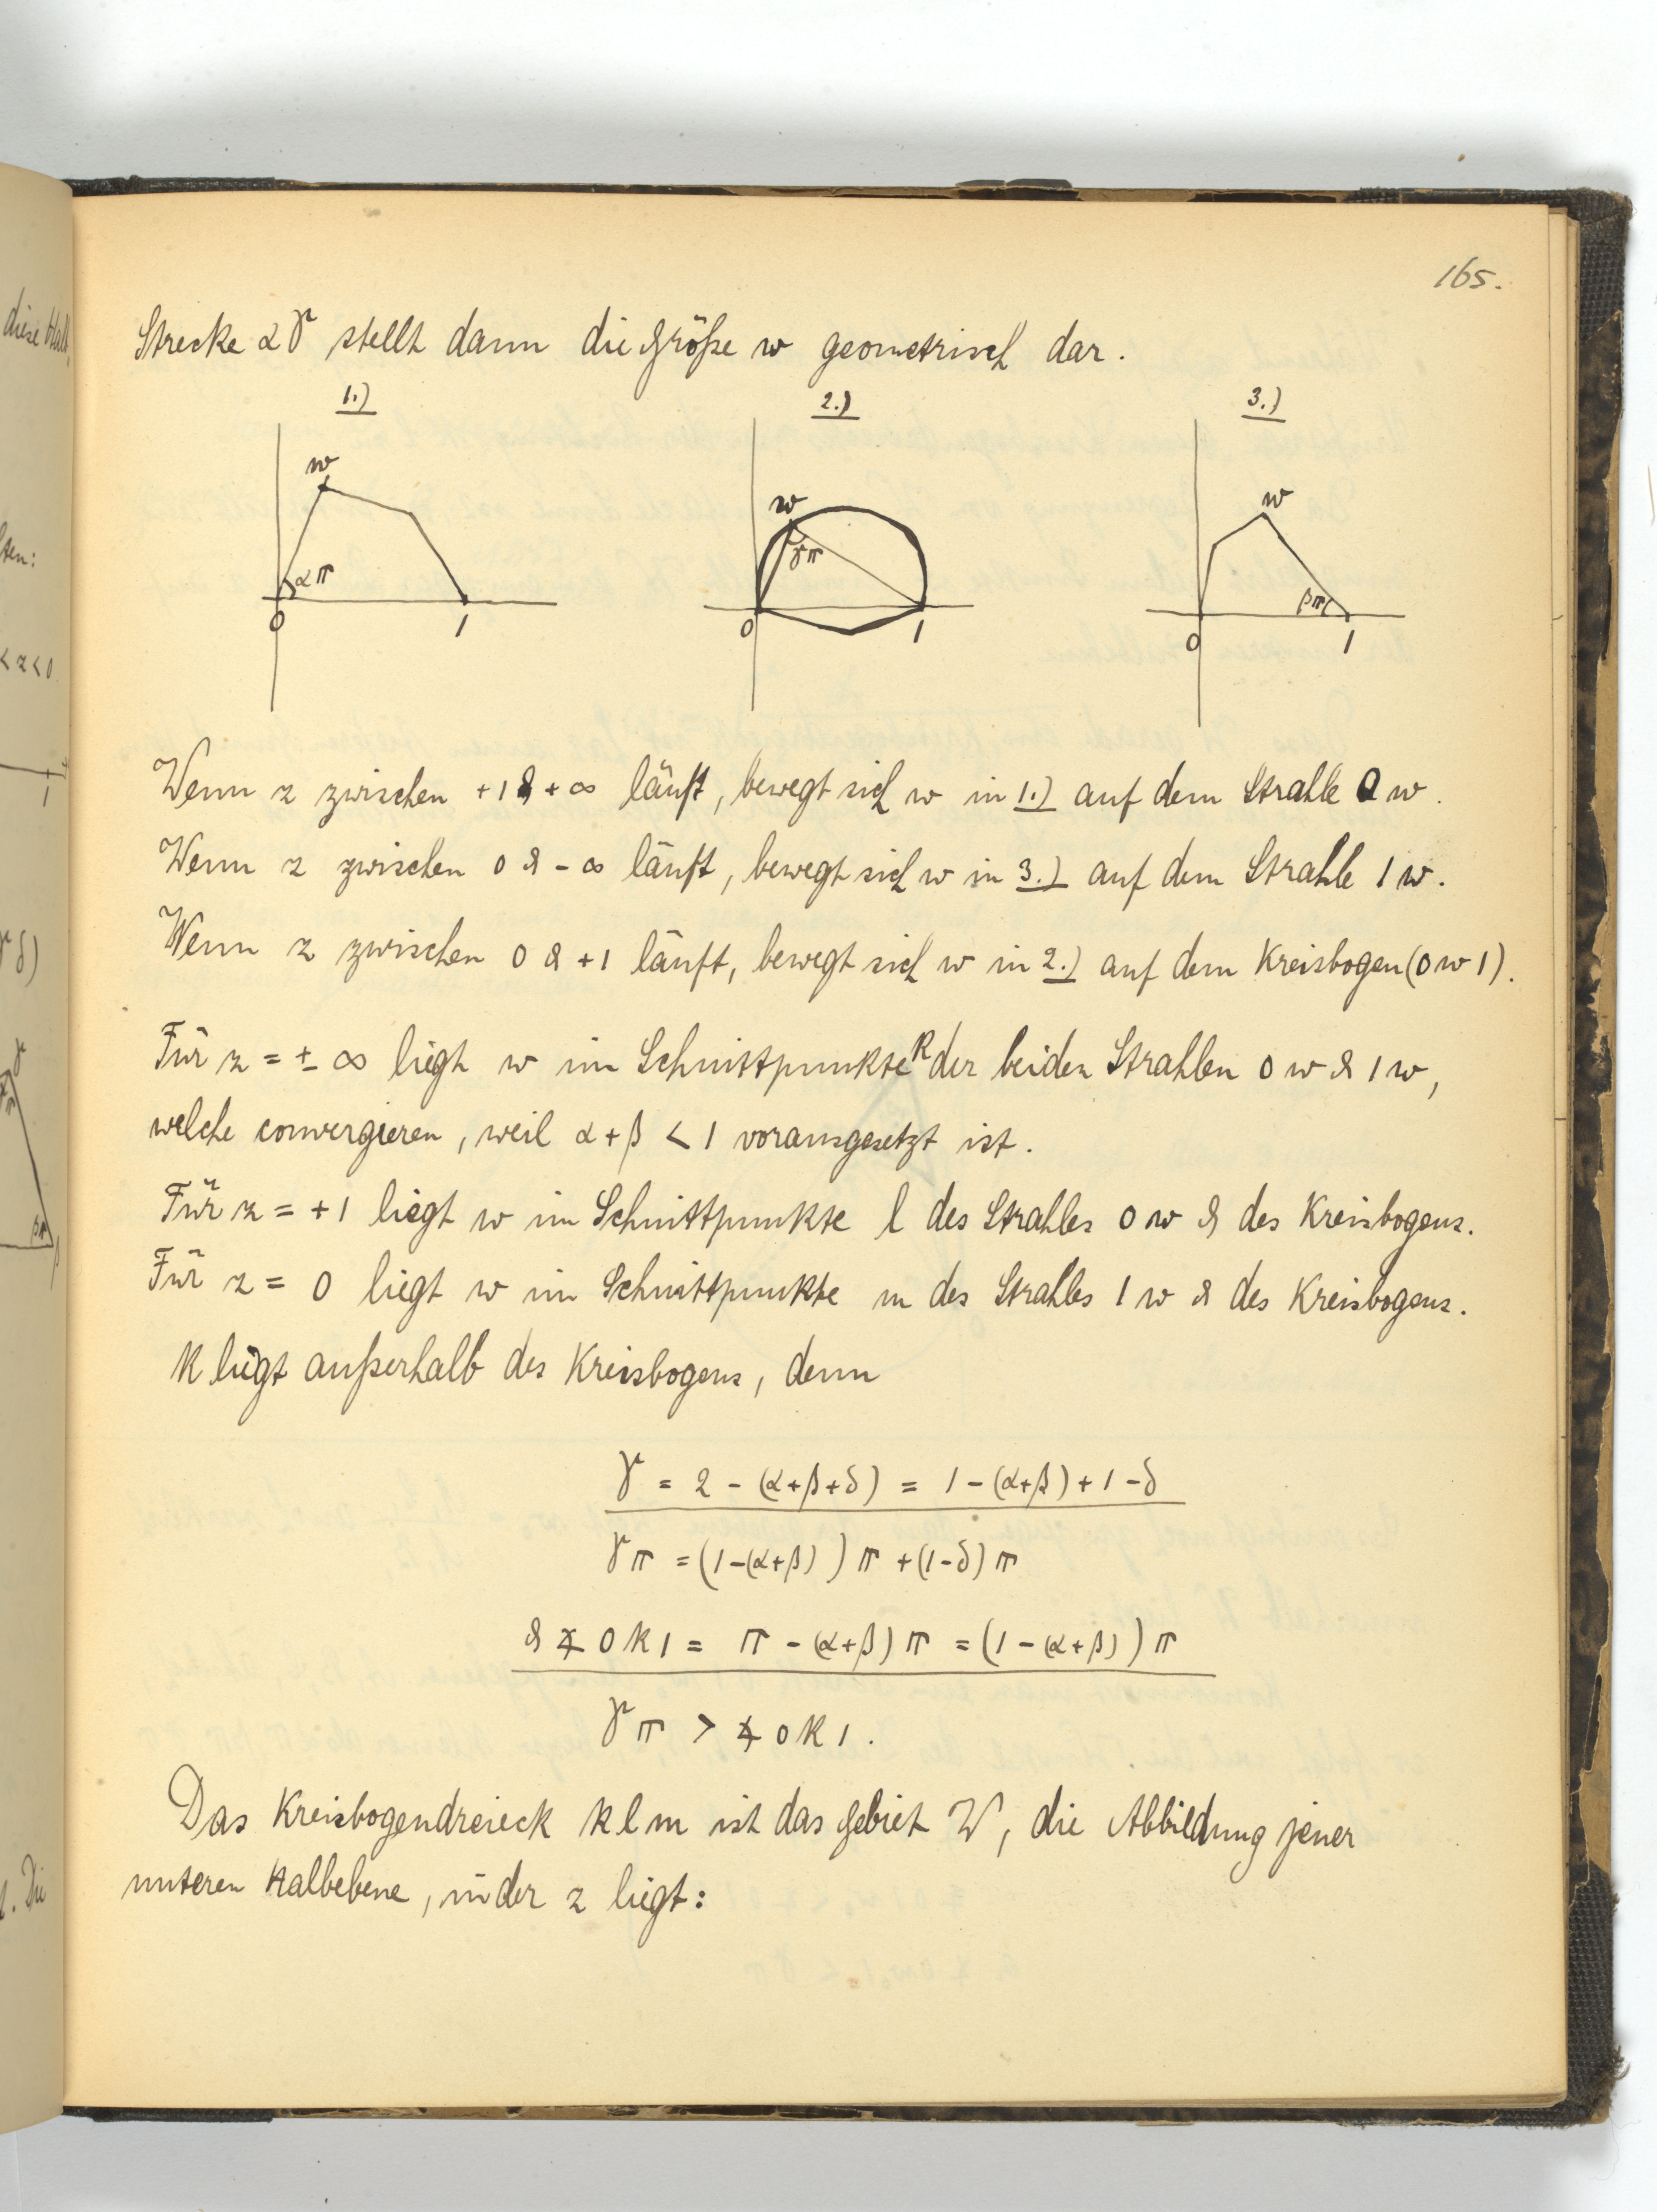 165.
Strecke αγ stellt dann die Größe w geometrisch dar.
1.) 2.) 3.)
w w w
απ γπ βπ
0 1 0 1 0 1
Wenn z zwischen +1 & +∞ läuft, bewegt sich w in 1.) auf dem Strahle 0 w.
Wenn z zwischen 0 & -∞ läuft, bewegt sich w in 3.) auf dem Strahle 1 w.
Wenn z zwischen 0 & +1 läuft, bewegt sich w in 2.) auf dem Kreisbogen (0 w 1).
Für z = ± ∞ liegt w im Schnittpunkte k der beiden Strahlen 0 w & 1 w,
welche convergieren, weil α+β < 1 vorausgesetzt ist.
Für z = +1 liegt w im Schnittpunkte l des Strahles 0 w & des Kreisbogens.
Für z = 0 liegt w im Schnittpunkte m des Strahles 1 w & des Kreisbogens.
k liegt außerhalb des Kreisbogens, denn
γ = 2 - (α+β+δ) = 1 - (α+β) + 1 - δ
γπ = (1-(α+β))π + (1-δ)π
& ∡ 0 k 1 = π - (α+β)π = (1 - (α+β))π
γπ > ∡ 0 k 1.
Das Kreisbogendreieck k l m ist das Gebiet W, die Abbildung jener
unteren Halbebene, in der z liegt:
diese Halb
ten:
< z < 0
1
γδ)
γ
βπ
β
. Die